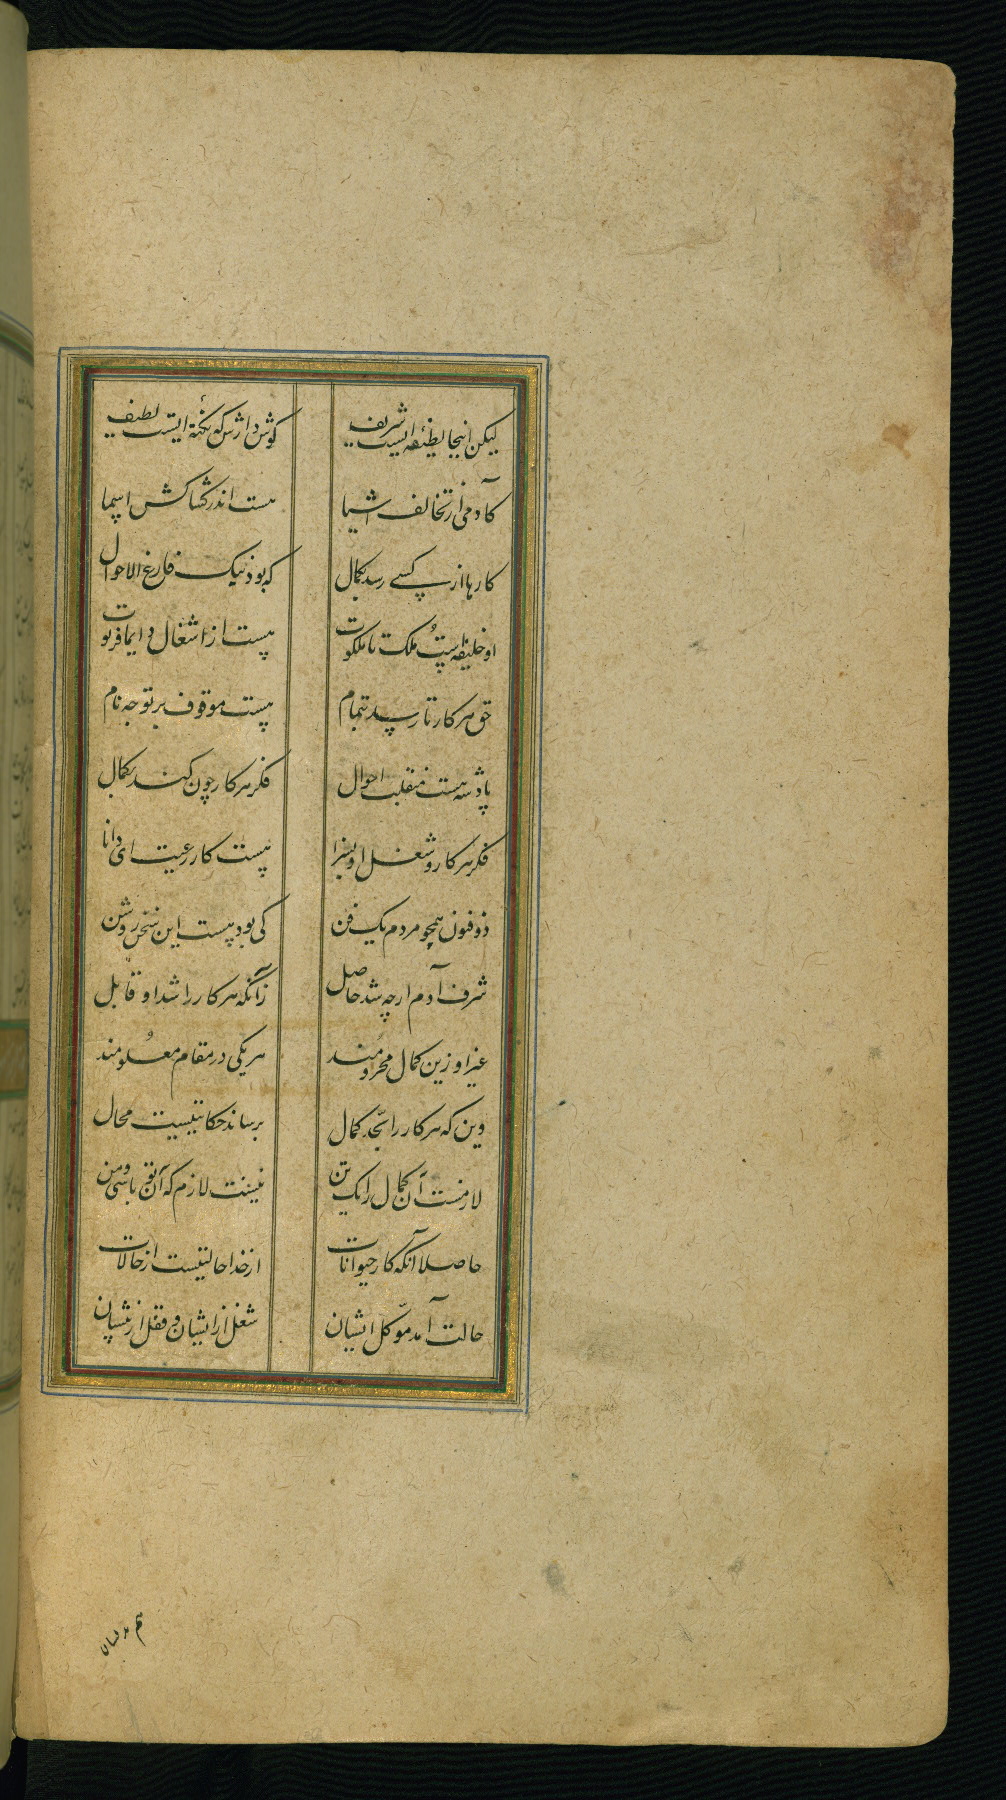 لیکن اینجا لطیفه ایست شریف گوش دارش که نکته ایست لطیف
کادمی از تخالف اشیا هست اندر کشاکش اسما
کارها از کسی رسد بکمال که بود نیک فارغ الاحوال
او خلیفه است ملک تا ملکوت هست از اشغال دایما فرتوت
حق هر کار تا رسد بتمام هست موقوف بر توجه تام
پادشه هست منقلب احوال فکر هر کار چون کند بکمال
فکر هر کار و شغل او بسزا هست کار رعیت ای دانا
ذو فنون همچو مردم یک فن کی بود هست این سخن روشن
شرف آدم ار چه شد حاصل زآنکه هر کار را شد او قابل
غیر او زین کمال محرومند هر یکی در مقام معلومند
وین که هر کار را بحد کمال برساند حکایتیست محال
لازمست آن کمال را یک تن نیست لازم که آن تو باشی و من
حاصلا آنکه کار حیوانات از خدا حالتیست از حالات
حالت آمد موکل ایشان شغل از ایشان و فعل از ایشان
هم بدیشان